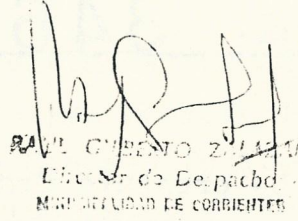 RAUL GILBERTO
Director de Despacho
MUNICIPALIDAD DE CORRIENTES